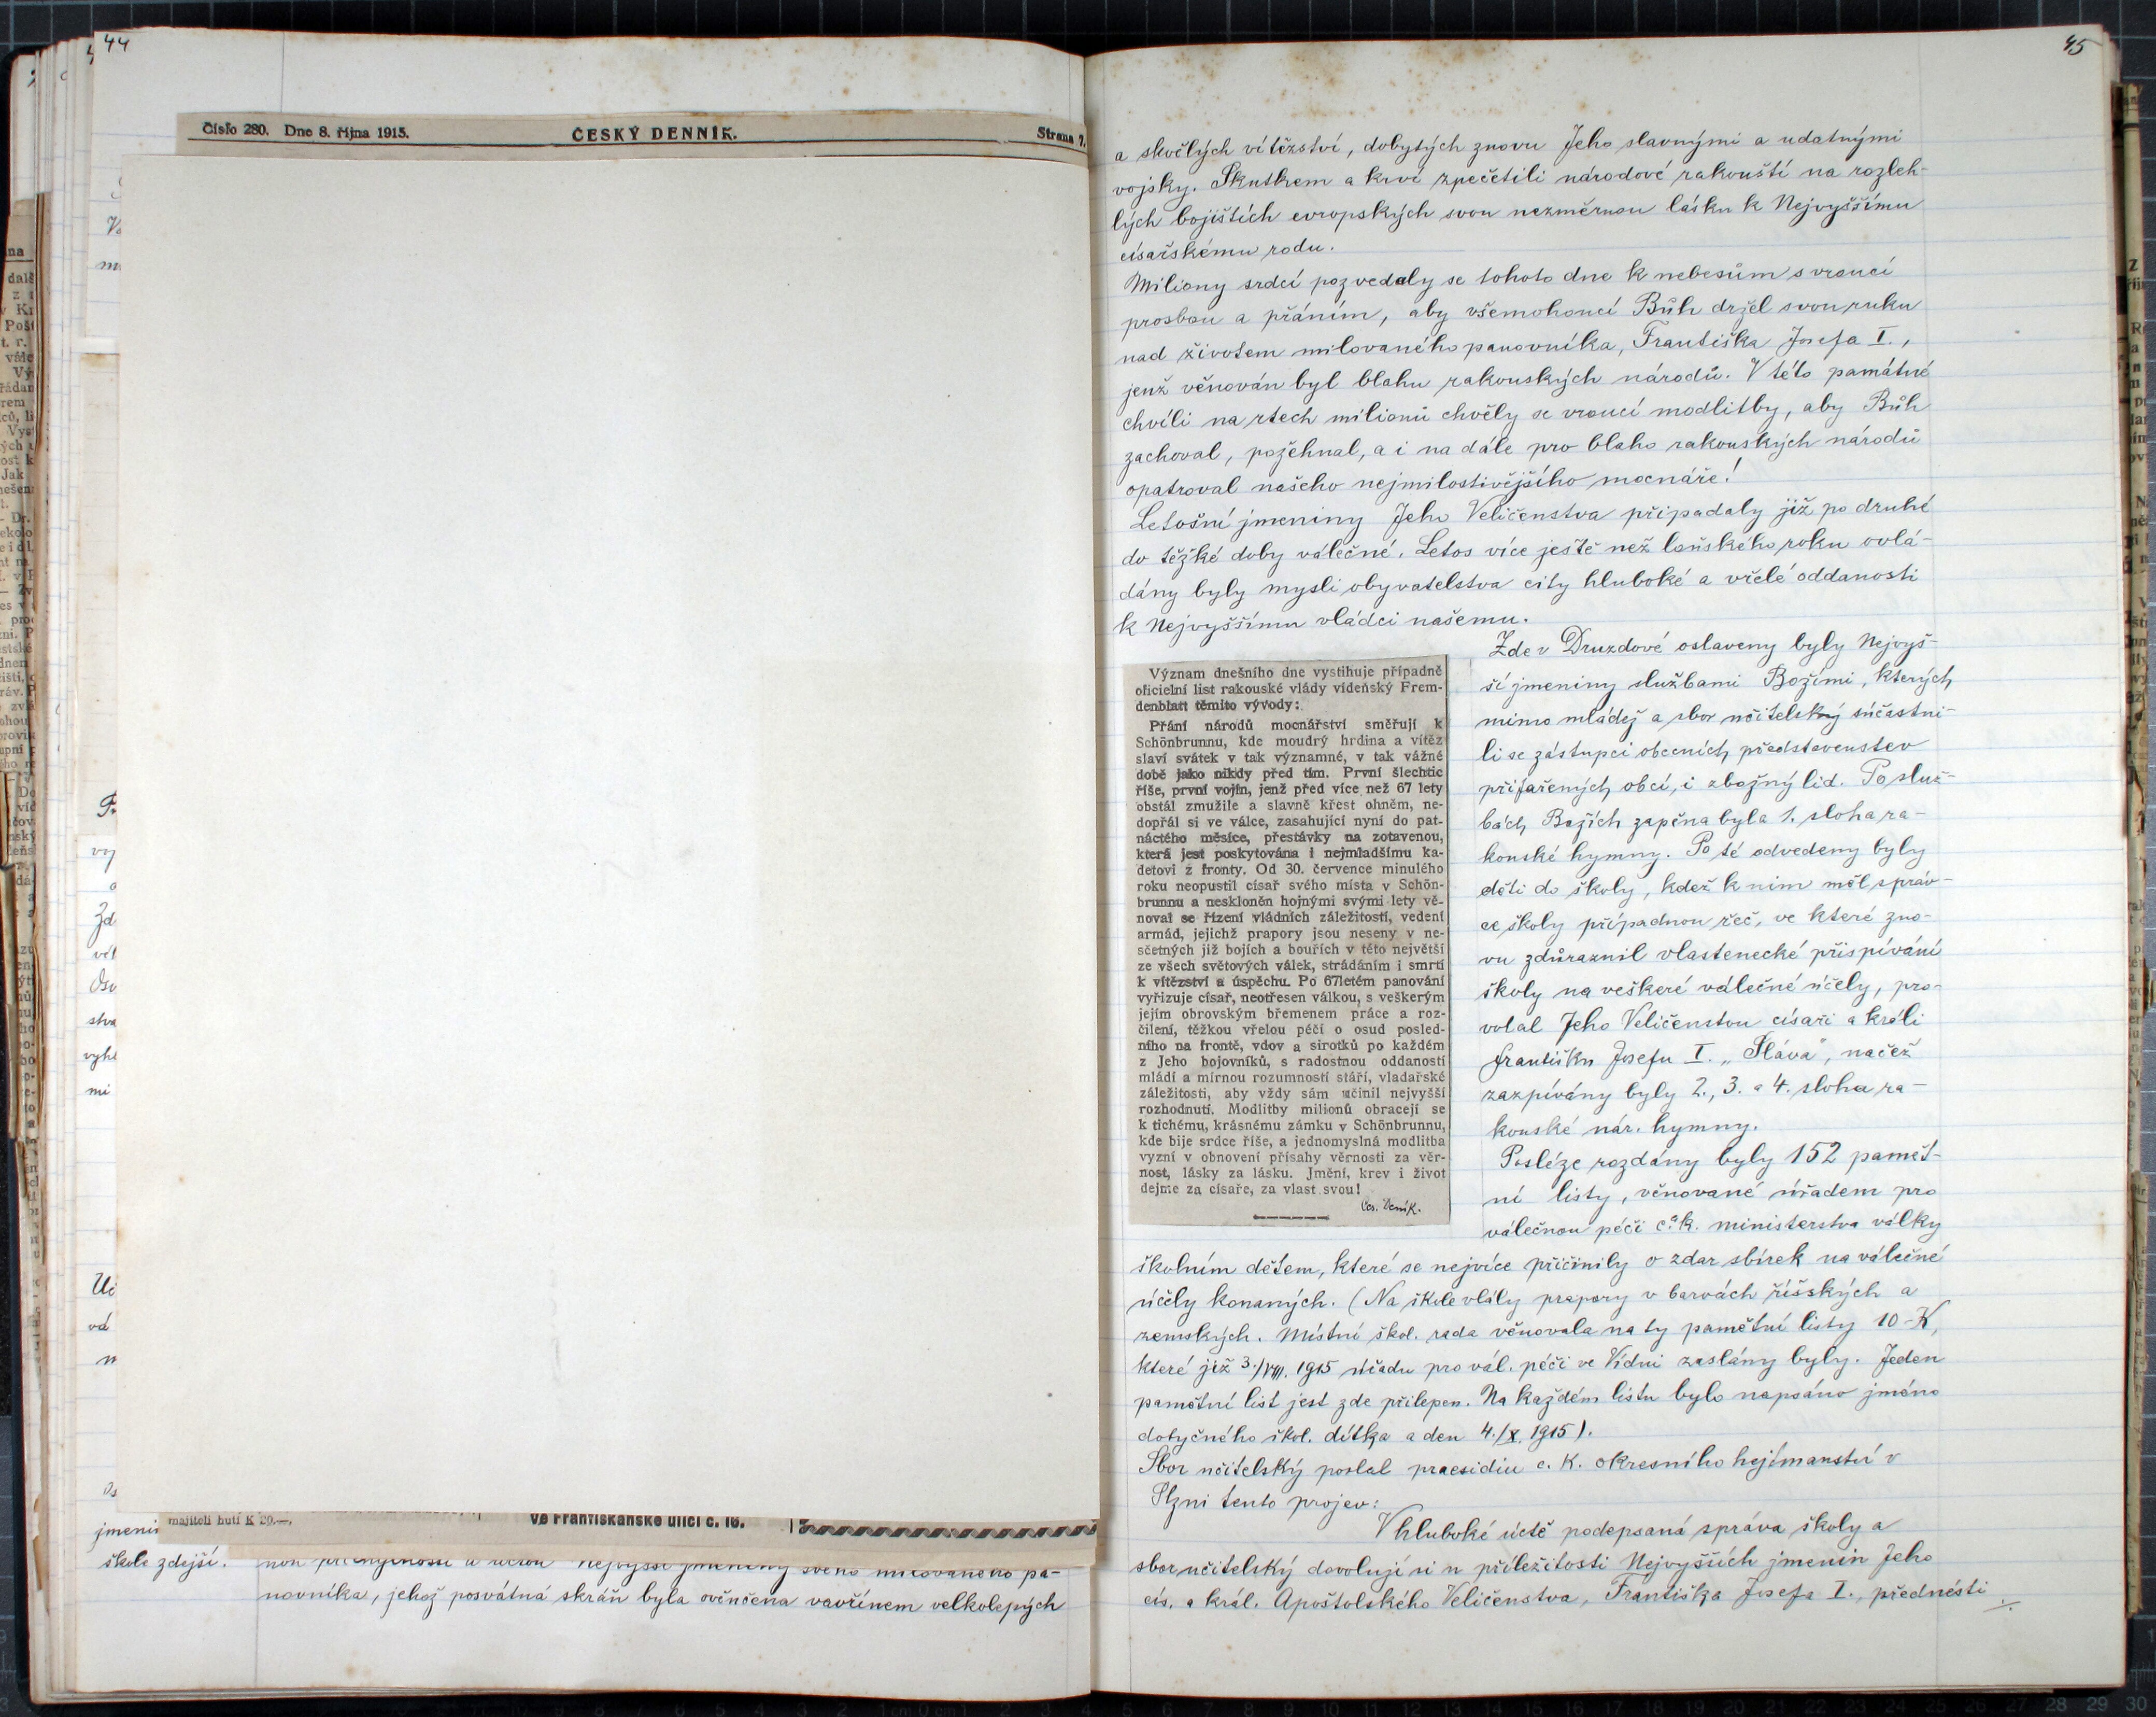 44
Číslo 280. Dne 8. října 1915. ČESKÝ DENNÍK. Strana 7.
majiteli hutí K 20.—,
ve Františkánské ulici č. 16.
jmenin
škole zdejší.
nejvyšší jmeniny svého milovaného pa-
novníka, jehož posvátná skráň byla ověnčena vavřínem velkolepých
45
a skvělých vítězství, dobytých znovu Jeho slavnými a udatnými
vojsky. Skutkem a krví zpečetili národové rakouští na rozleh-
lých bojištích evropských svou nezměrnou lásku k Nejvyššímu
císařskému rodu.
Miliony srdcí pozvedaly se tohoto dne k nebesům s vroucí
prosbou a přáním, aby všemohoucí Bůh držel svou ruku
nad životem milovaného panovníka, Františka Josefa I.,
jenž věnován byl blahu rakouských národů. V této památné
chvíli na rtech milionů chvěly se vroucí modlitby, aby Bůh
zachoval, požehnal, a i na dále pro blaho rakouských národů
opatroval našeho nejmilostivějšího mocnáře!
Letošní jmeniny Jeho Veličenstva připadaly již po druhé
do těžké doby válečné. Letos více ještě než loňského roku ovlá-
dány byly mysli obyvatelstva city hluboké a vřelé oddanosti
k Nejvyššímu vládci našemu.
Význam dnešního dne vystihuje případně
oficielní list rakouské vlády vídeňský Frem-
denblatt těmito vývody:
Přání národů mocnářství směřují k
Schönbrunnu, kde moudrý hrdina a vítěz
slaví svátek v tak významné, v tak vážné
době jako nikdy před tím. První šlechtic
říše, první vojín, jenž před více než 67 lety
obstál zmužile a slavně křest ohněm, ne-
dopřál si ve válce, zasahující nyní do pat-
náctého měsíce, přestávky na zotavenou,
která jest poskytována i nejmladšímu ka-
detovi z fronty. Od 30. července minulého
roku neopustil císař svého místa v Schön-
brunnu a neskloněn hojnými svými lety vě-
noval se řízení vládních záležitostí, vedení
armád, jejichž prapory jsou neseny v ne-
sčetných již bojích a bouřích v této největší
ze všech světových válek, strádáním i smrtí
k vítězství a úspěchu. Po 67letém panování
vyřizuje císař, neotřesen válkou, s veškerým
jejím obrovským břemenem práce a roz-
čilení, těžkou vřelou péčí o osud posled-
ního na frontě, vdov a sirotků po každém
z Jeho bojovníků, s radostnou oddaností
mládí a mírnou rozumností stáří, vladařské
záležitosti, aby vždy sám učinil nejvyšší
rozhodnutí. Modlitby milionů obracejí se
k tichému, krásnému zámku v Schönbrunnu,
kde bije srdce říše, a jednomyslná modlitba
vyzní v obnovení přísahy věrnosti za věr-
nost, lásky za lásku. Jmění, krev i život
dejme za císaře, za vlast svou!
Čes. Deník.
Zde v Druzdové oslaveny byly Nejvyš-
ší jmeniny službami Božími, kterých
mimo mládež a sbor učitelský súčastni-
li se zástupci obecních představenstev
přifařených obcí, i zbožný lid. Po služ-
bách Božích zapěna byla 1. sloha ra-
kouské hymny. Po té odvedeny byly
děti do školy, kdež k nim měl správ-
ce školy případnou řeč, ve které zno-
vu zdůraznil vlastenecké přispívání
školy na veškeré válečné účely, pro-
volal Jeho Veličenstvu císaři a králi
Františku Josefu I. „Sláva", načež
zazpívány byly 2., 3. a 4. sloha ra-
kouské nár. hymny.
Posléze rozdány byly 152 pamět-
ní listy, věnované úřadem pro
válečnou péči c. a k. ministerstva války
školním dětem, které se nejvíce přičinily o zdar sbírek na válečné
účely konaných. (Na škole vlály prapory v barvách říšských a
zemských. Místní škol. rada věnovala na ty pamětní listy 10 K,
které již 3./VIII. 1915 úřadu pro vál. péči ve Vídni zaslány byly. Jeden
pamětní list jest zde přilepen. Na každém listu bylo napsáno jméno
dotyčného škol. dítka a den 4./X. 1915).
Sbor učitelský poslal praesidiu c. k. okresního hejtmanství v
Plzni tento projev:
V hluboké úctě podepsaná správa školy a
sbor učitelský dovolují si u příležitosti Nejvyšších jmenin Jeho
cís. a král. Apoštolského Veličenstva, Františka Josefa I., přednésti
./.